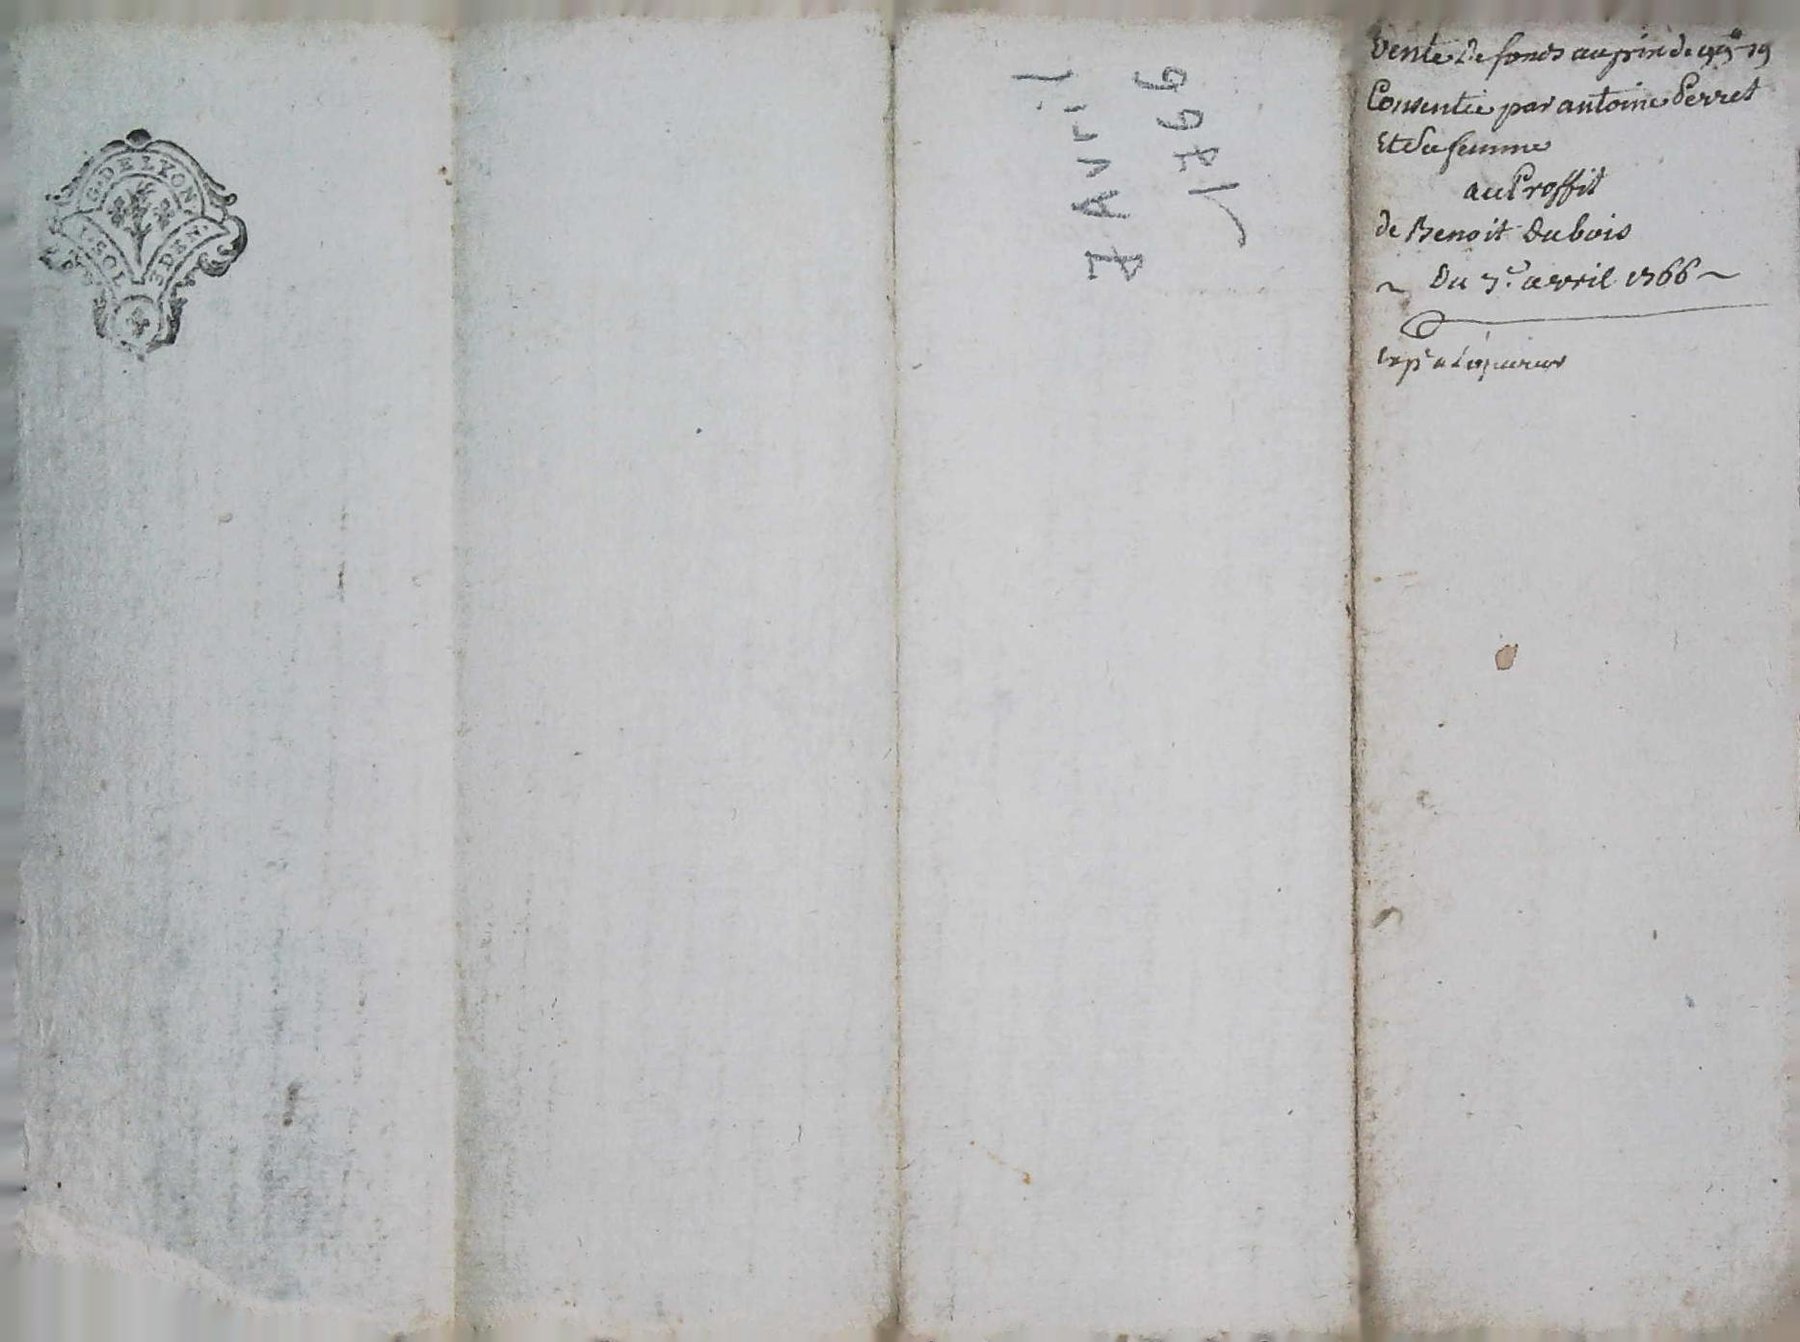 G. DE LYON
1. SOL
8 DEN.
7 Avril
1766
Vente De fonds au prix de 99# 19
Consentie par antoine Perret
Et Sa femme
au Proffit
de Benoit Dubois
~ Du 7.e avril 1766 ~